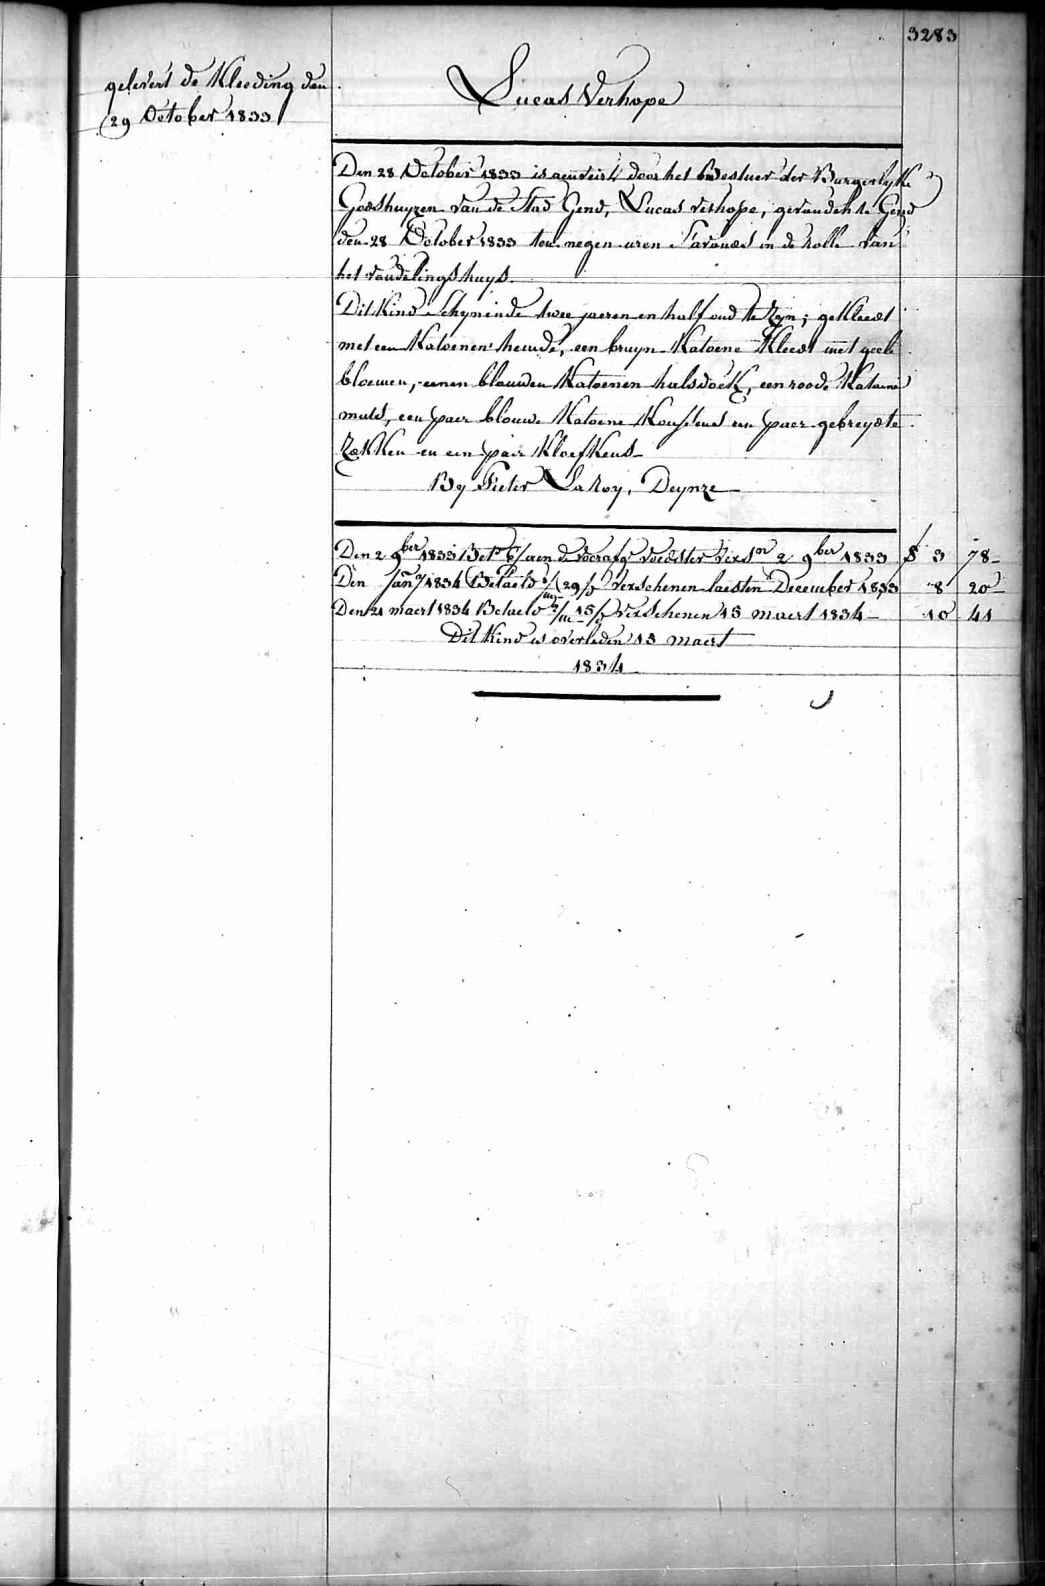 3283
gelevert de Kleeding den
29 October 1833
Lucas Verhope
Den 28 October 1833 is aenveirt door het bestuer der Burgerlyke
Godshuyzen van de Stad Gend, Lucas verhope, gevonden te Gend
den 28 October 1833 ten negen uren s'avonds in de rolle van
het vondelingshuys.
Dit Kind schynende twee jaeren en half oud te zyn; gekleed
met een Katoenen hemde, een bruyn Katoene Kleed met geele
bloemen, eenen blauwen Katoenen halsdoek, een roode Katoene
muts, een paer blouwe Katoene Kousens een paer gebreyde
Zokken en een paer Kloefkens
By Pieter LaRoy, Deynze
Den 2 9ber 1833 Bet aen de voorafg voedster vers 2 9ber 1833 3 78
Den Jany 1834 Betaeld 1/m 29/d verschenen laesten December 1833 8 20
Den 21 maert 1834 Betaeld 2/m 15/d verschenen 15 maert 1834 10 41
Dit Kind is overleden 15 maert
1834